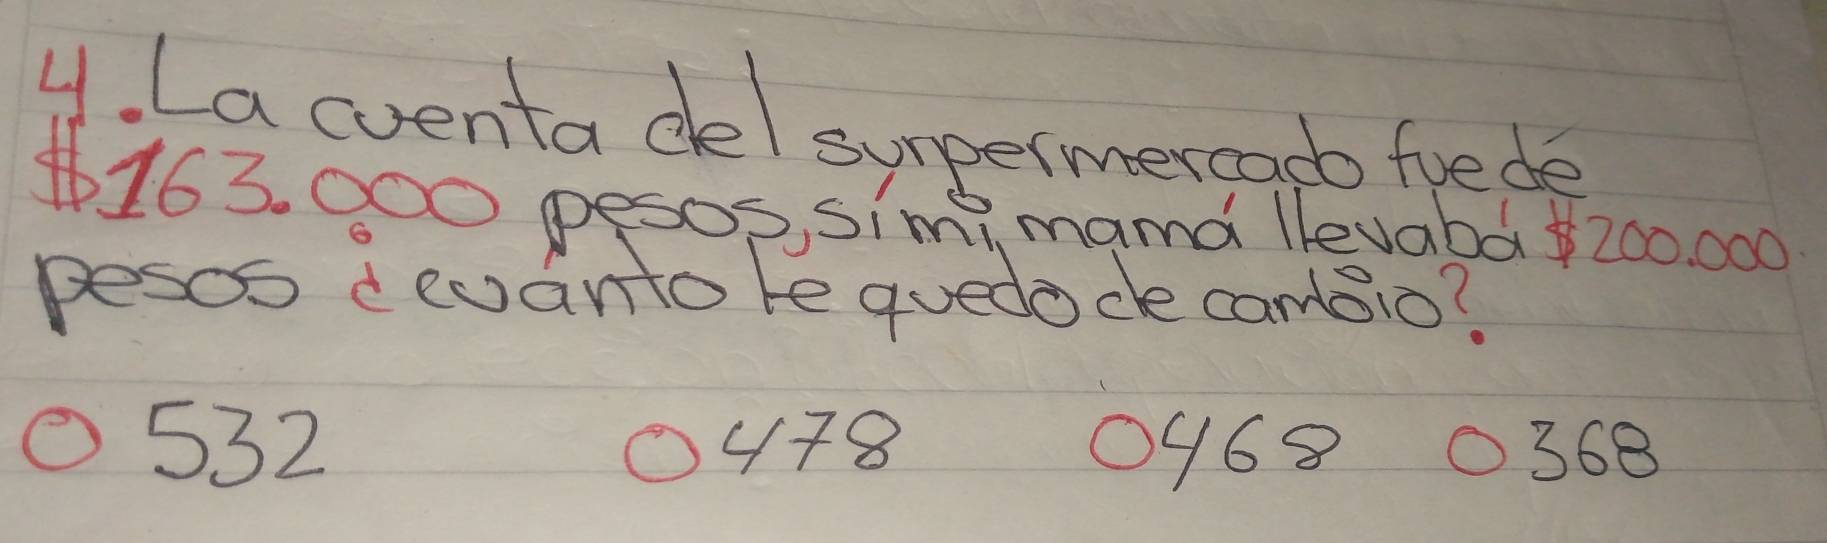 4. La cuenta del surpermercado fue dé
$163.000 pesos, sí mi mamá llevabá $200.000
pesos ¿cuánto le quedo de cambio?
532 478 468 368